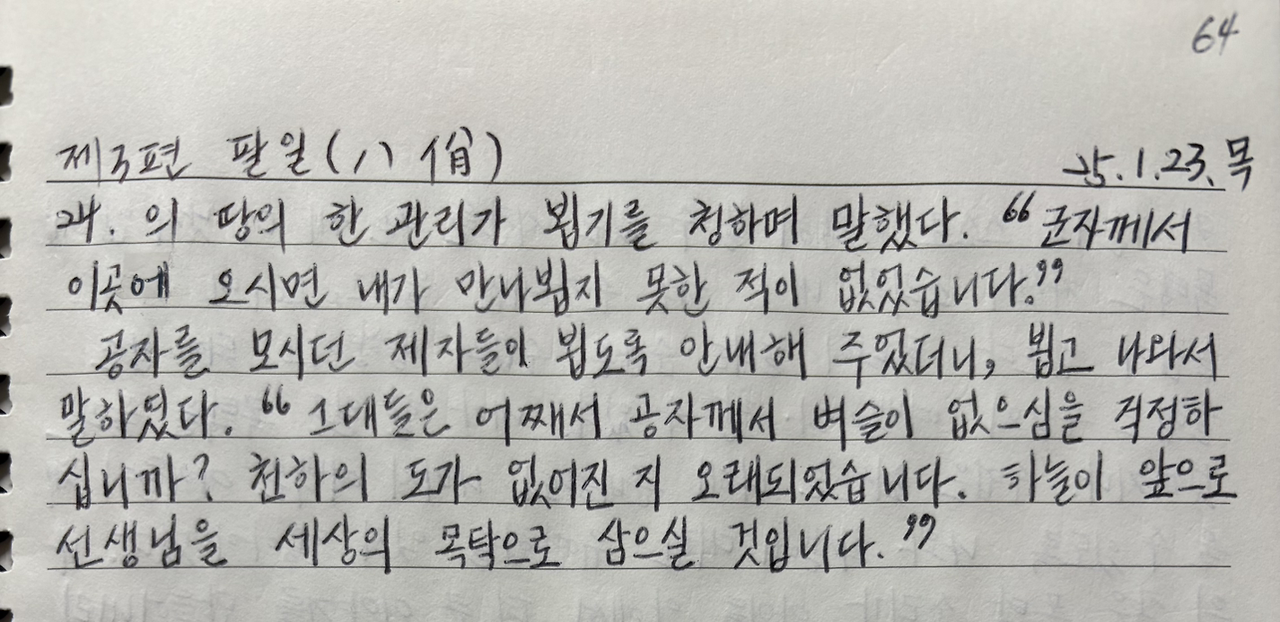 64
제3편 팔일(八佾) 25.1.23.목
24. 의 땅의 한 관리가 뵙기를 청하며 말했다. “군자께서
이곳에 오시면 내가 만나뵙지 못한 적이 없었습니다.”
공자를 모시던 제자들이 뵙도록 안내해 주었더니, 뵙고 나와서
말하였다. “그대들은 어째서 공자께서 벼슬이 없으심을 걱정하
십니까? 천하의 도가 없어진 지 오래되었습니다. 하늘이 앞으로
선생님을 세상의 목탁으로 삼으실 것입니다.”